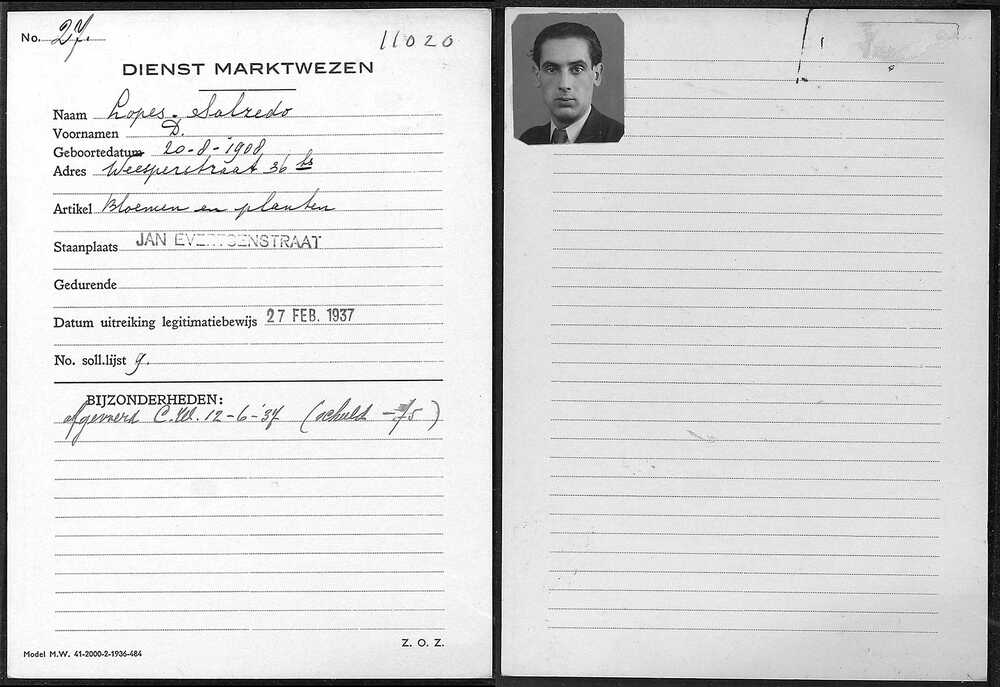 No. 27.
11020
DIENST MARKTWEZEN
Naam Lopes - Salzedo
Voornamen D.
Geboortedatum 20-8-1908
Adres Weesperstraat 36 hs
Artikel Bloemen en planten
Staanplaats JAN EVERTSENSTRAAT
Gedurende
Datum uitreiking legitimatiebewijs 27 FEB. 1937
No. soll.lijst 9.
BIJZONDERHEDEN:
afgevoerd C.W. 12-6-'37 (schuld -75)
Z. O. Z.
Model M.W. 41-2000-2-1936-484